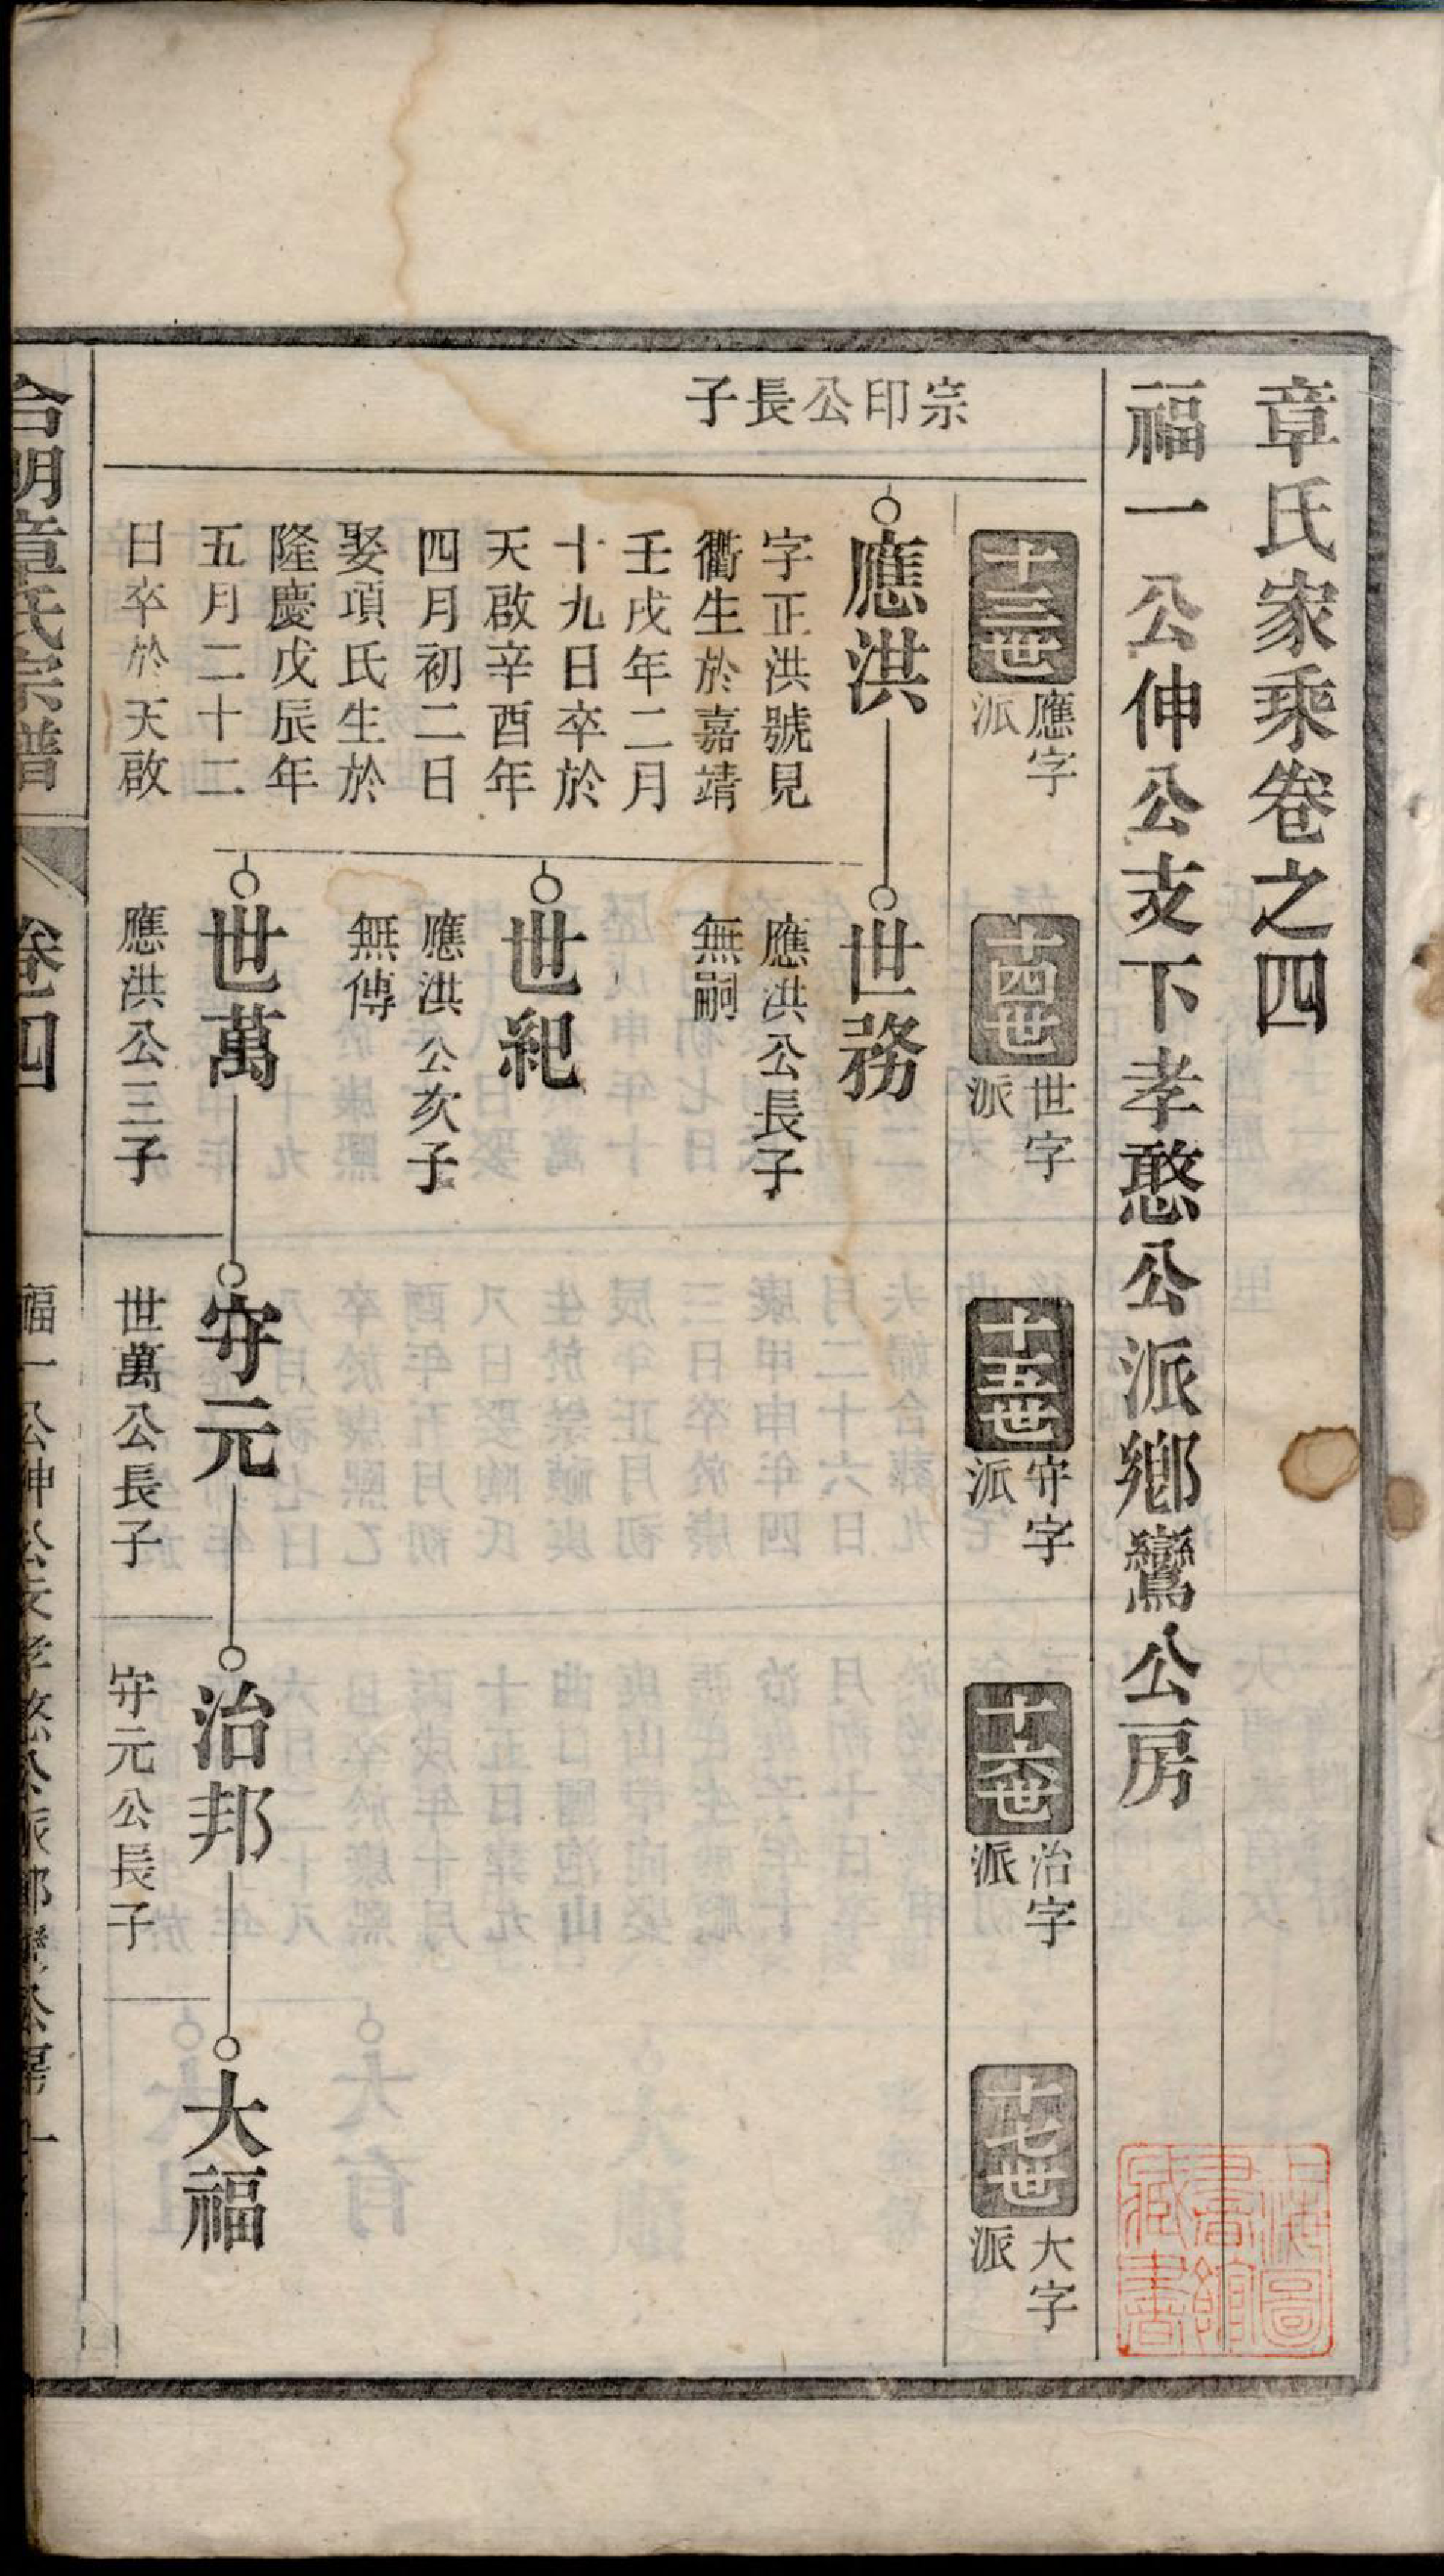 章氏家乘卷之四
福一公伸公支下孝憨公派鄉鸞公房
上海圖書館藏書
十三世
應字派
十四世
世字派
十五世
守字派
十六世
治字派
十七世
大字派
宗印公長子
應洪
字正洪號見
衢生於嘉靖
壬戌年二月
十九日卒於
天啟辛酉年
四月初二日
娶項氏生於
隆慶戊辰年
五月二十二
日卒於天啟
世務
應洪公長子
無嗣
世紀
應洪公次子
無傳
世萬
應洪公三子
守元
世萬公長子
治邦
守元公長子
大福
合明章氏宗譜
卷四
福一公伸公支孝憨公派鄉鸞公房